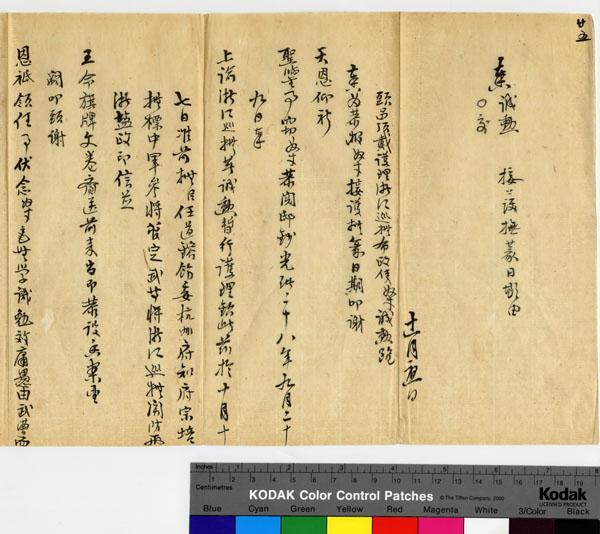 廿五
奏 誠勳 接護撫篆日期由
頭品頂戴護理浙江巡撫布政使奴才誠勳跪
奏為恭報奴才接護撫篆日期叩謝
天恩仰祈
聖鑒事竊奴才恭閱邸鈔光緒二十八年九月二十
九日奉
上諭浙江巡撫著誠勳暫行護理欽此茲於十月十
七日准前撫臣任道鎔飭委杭州府知府宗培
撫標中軍參將崔定武等將浙江巡撫關防兩
浙鹽政印信並
王命旗牌文卷齎送前來當即恭設香案望
闕叩頭謝
恩祗領任事伏念奴才毫無學識勉效庸愚由武曹而
Inches
Centimetres
KODAK Color Control Patches
© The Tiffen Company, 2000
Kodak
LICENSED PRODUCT
Blue Cyan Green Yellow Red Magenta White 3/Color Black